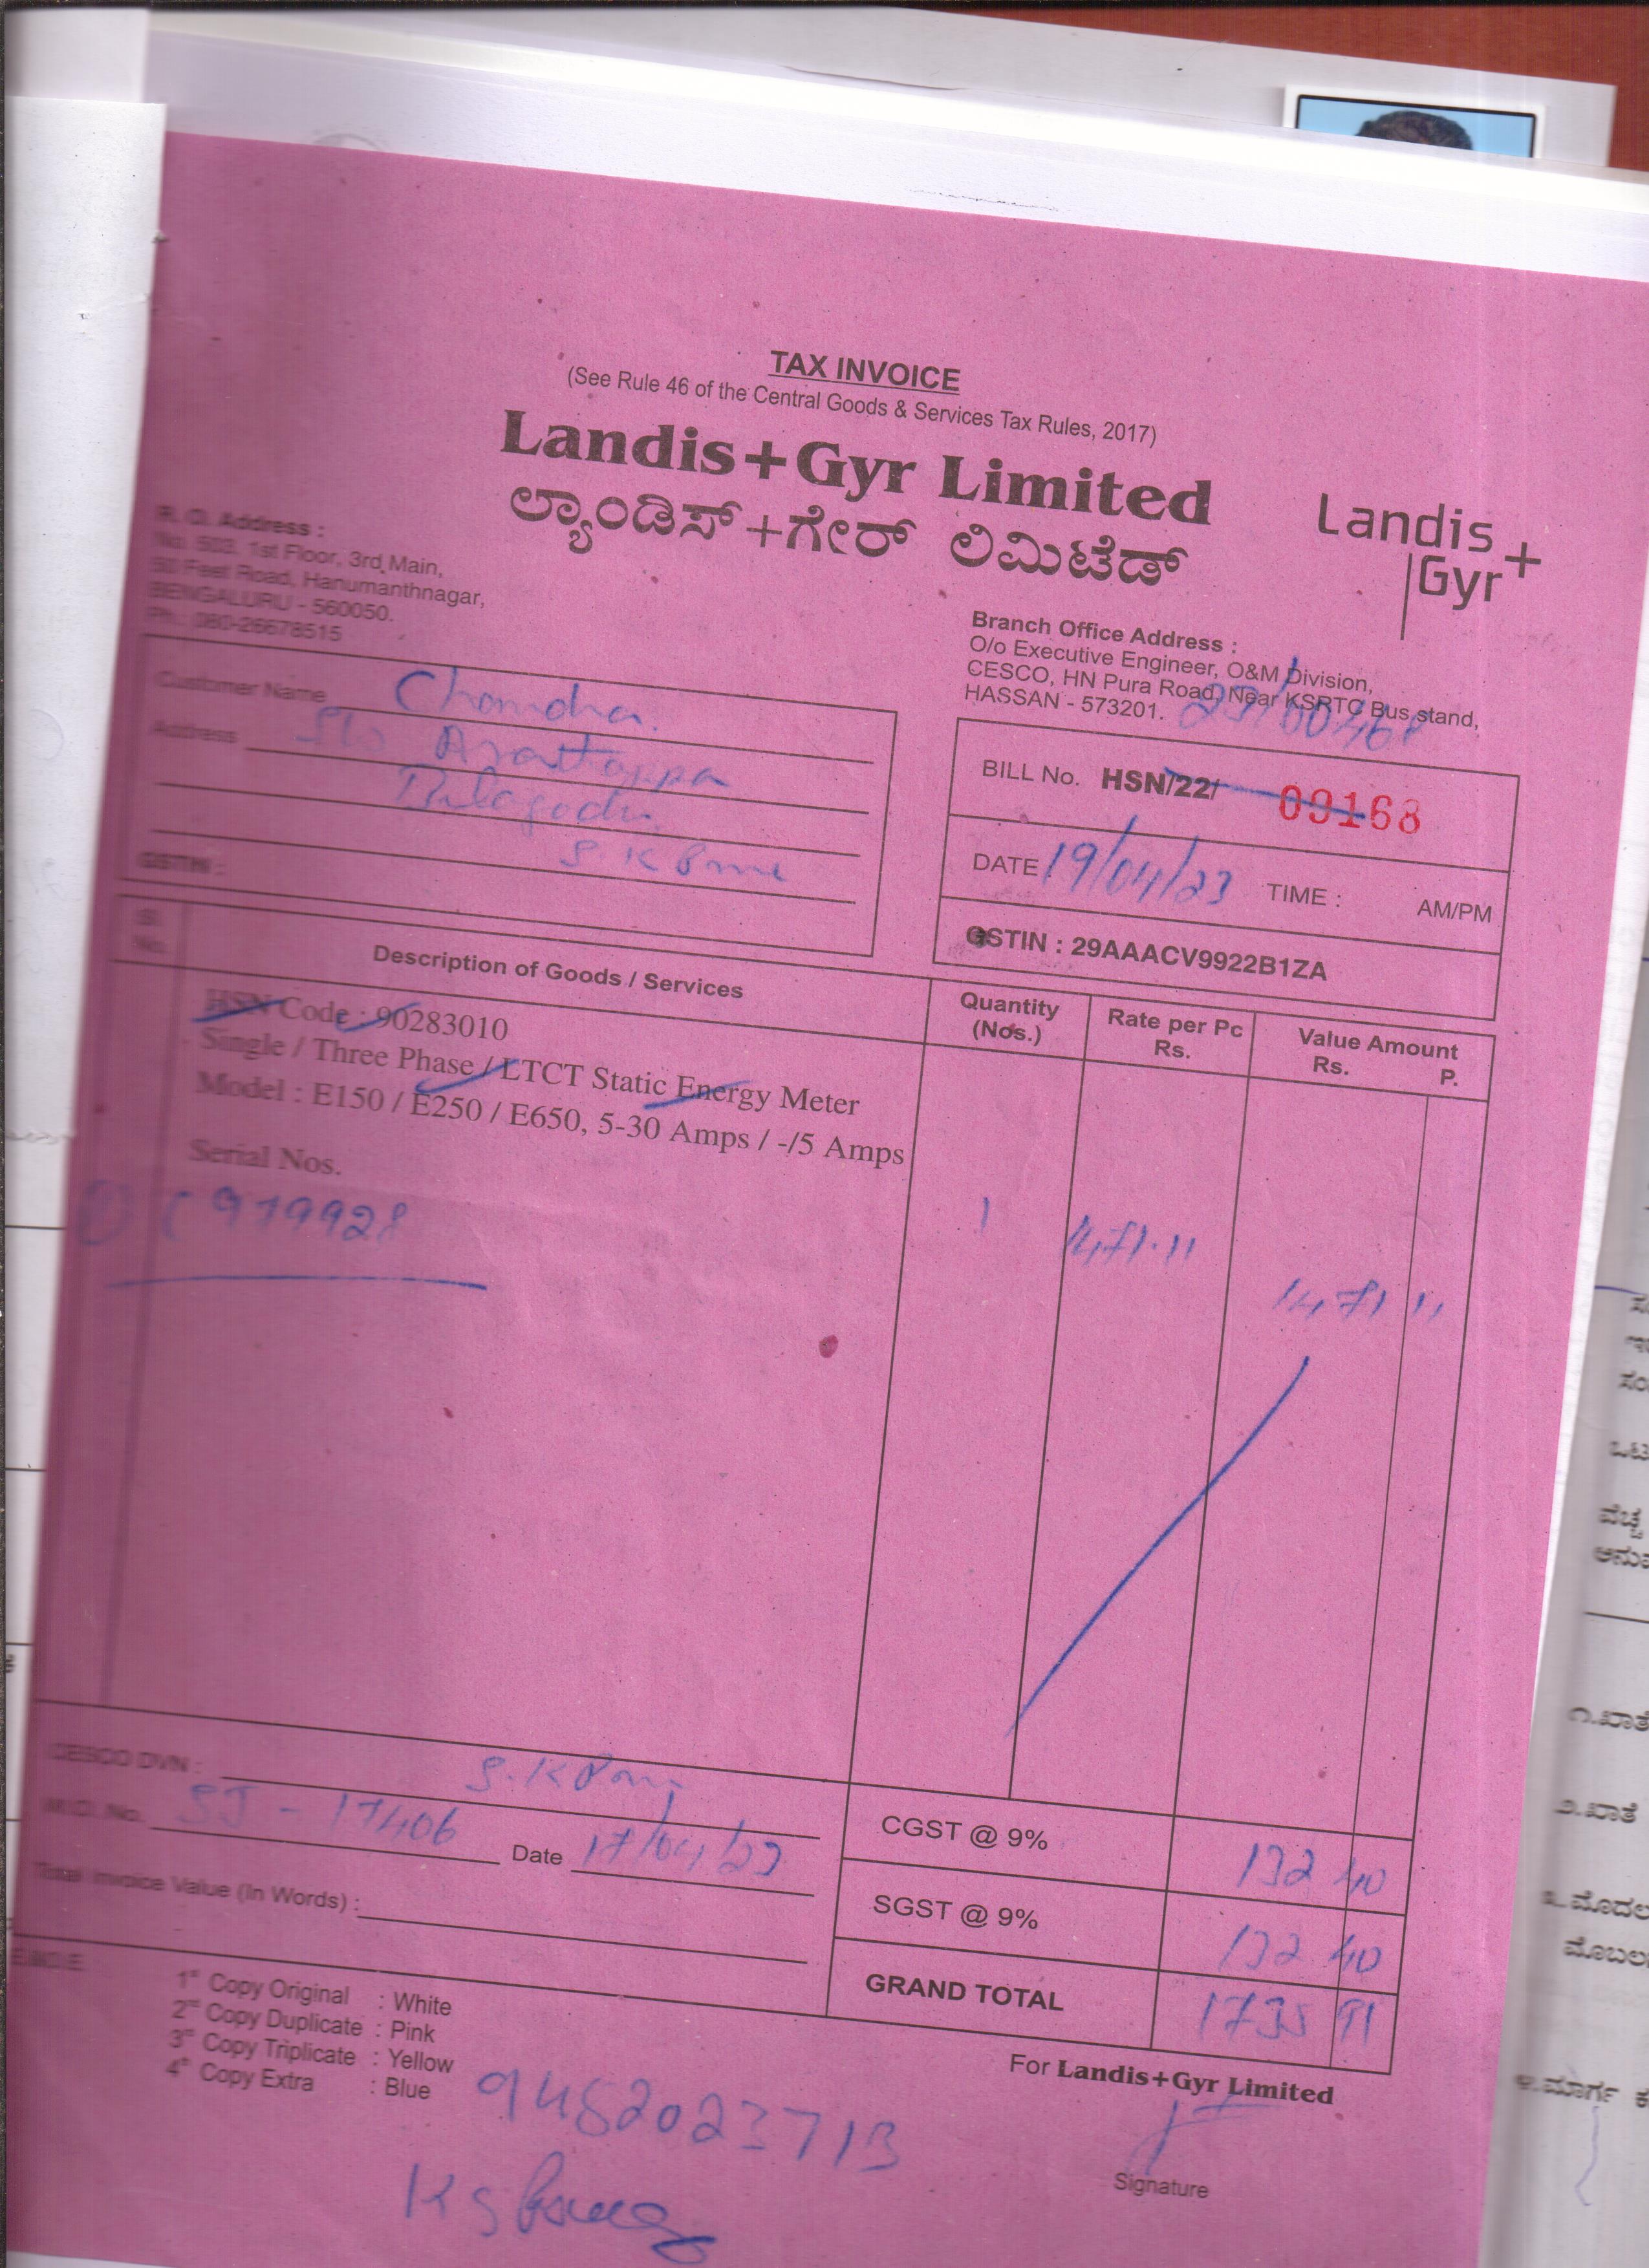 TAX INVOICE
(See Rule 46 of the Central Goods & Services Tax Rules, 2017)
Landis+Gyr Limited
ಲ್ಯಾಂಡಿಸ್+ಗೇರ್ ಲಿಮಿಟೆಡ್
Landis+
Gyr
R. O. Address :
No. 503, 1st Floor, 3rd Main,
50 Feet Road, Hanumanthnagar,
BENGALURU - 560050.
Ph.: 080-26678515
Branch Office Address :
O/o Executive Engineer, O&M Division,
CESCO, HN Pura Road, Near KSRTC Bus stand,
HASSAN - 573201.
Customer Name Chandra.
Address S/o
GSTIN :
BILL No. HSN/22/ 09168
DATE 19/04/23 TIME : AM/PM
GSTIN : 29AAACV9922B1ZA
Sl. No. Description of Goods / Services Quantity (Nos.) Rate per Pc Rs. Value Amount Rs. P.
HSN Code : 90283010
Single / Three Phase / LTCT Static Energy Meter
Model : E150 / E250 / E650, 5-30 Amps / -/5 Amps
Serial Nos.
979928 1 1471.11 1471 11
CESCO DVN :
M.O. No. SJ - 17406 Date 17/04/23
Total Invoice Value (In Words) :
CGST @ 9% 132 40
SGST @ 9% 132 40
GRAND TOTAL 1735 91
E.&O.E.
1st Copy Original : White
2nd Copy Duplicate : Pink
3rd Copy Triplicate : Yellow
4th Copy Extra : Blue
For Landis+Gyr Limited
9482023713
Signature
೧.ಖಾತೆ
೨.ಖಾತೆ